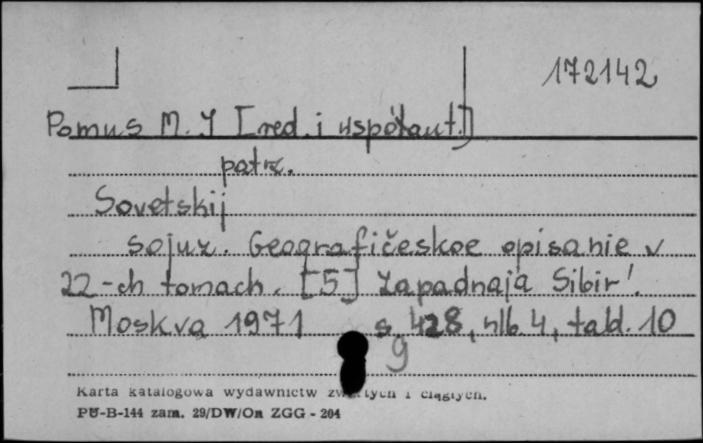 172142
Pomus M. I [red. i współaut.]
patrz.
Sovetskij
sojuz. Geografičeskoe opisanie v
22-ch tomach. [5] Zapadnaja Sibir'.
Moskva 1971 s. 428, nlb. 4, tabl. 10
9
Karta katalogowa wydawnictw zwartych i ciągłych.
PU-B-144 zam. 29/DW/On ZGG - 204